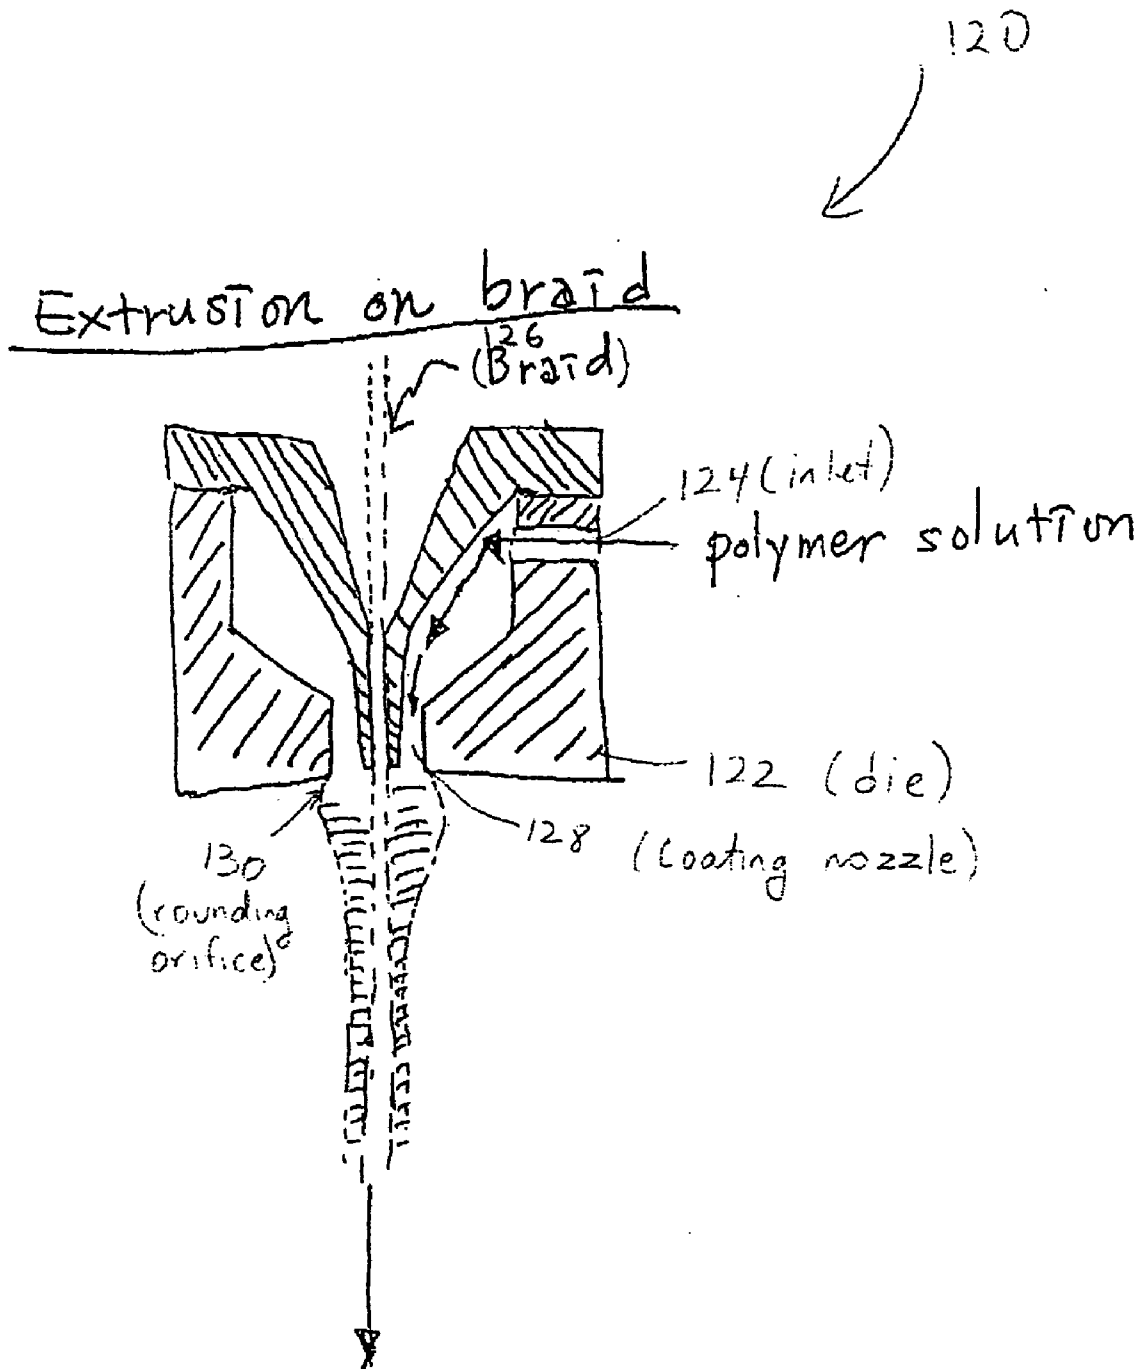 120
Extrusion on braid
126
(Braid)
124 (inlet)
polymer solution
122 (die)
128
(Coating nozzle)
130
(rounding
orifice)